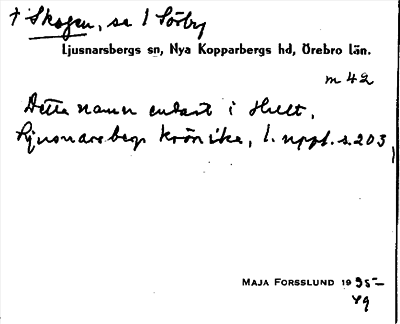 † Skogen, se 1 Sörby
Ljusnarsbergs sn, Nya Kopparbergs hd, Örebro län.
m 42
Detta namn endast i Hult,
Ljusnarsbergs krönika, 1. uppl. s. 203,
MAJA FORSSLUND 1935-
49